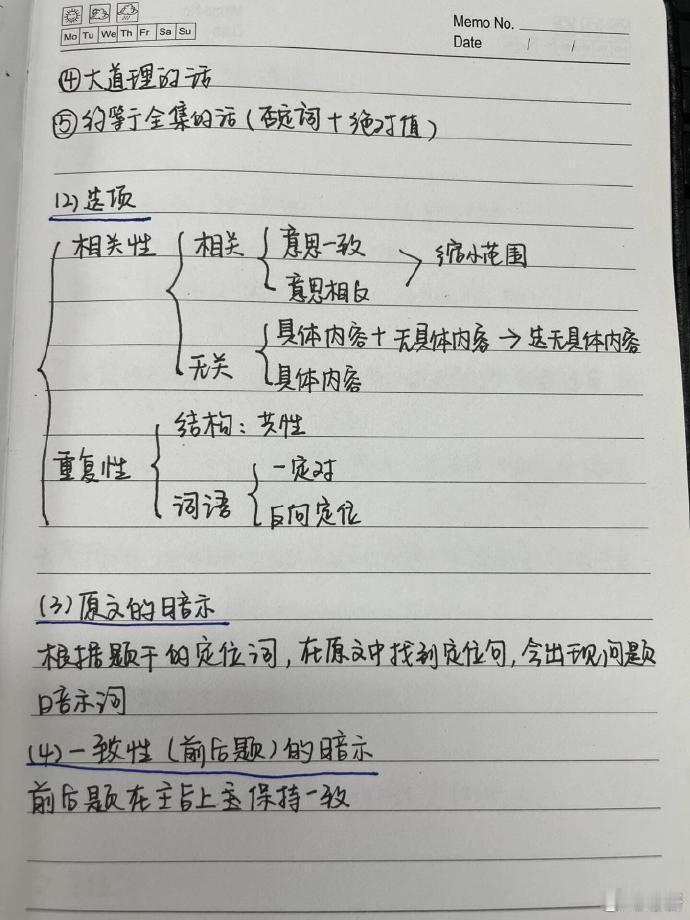 Memo No.
Mo Tu We Th Fr Sa Su
Date / /
④大道理的话
⑤约等于全集的话(否定词+绝对值)
(2)选项
相关性 相关 意思一致 缩小范围
意思相反
无关 具体内容+无具体内容→选无具体内容
具体内容
重复性 结构:共性
词语 一定对
反向定位
(3)原文的暗示
根据题干的定位词,在原文中找到定位句,会出现问题
暗示词
(4)一致性(前后题)的暗示
前后题在主旨上要保持一致